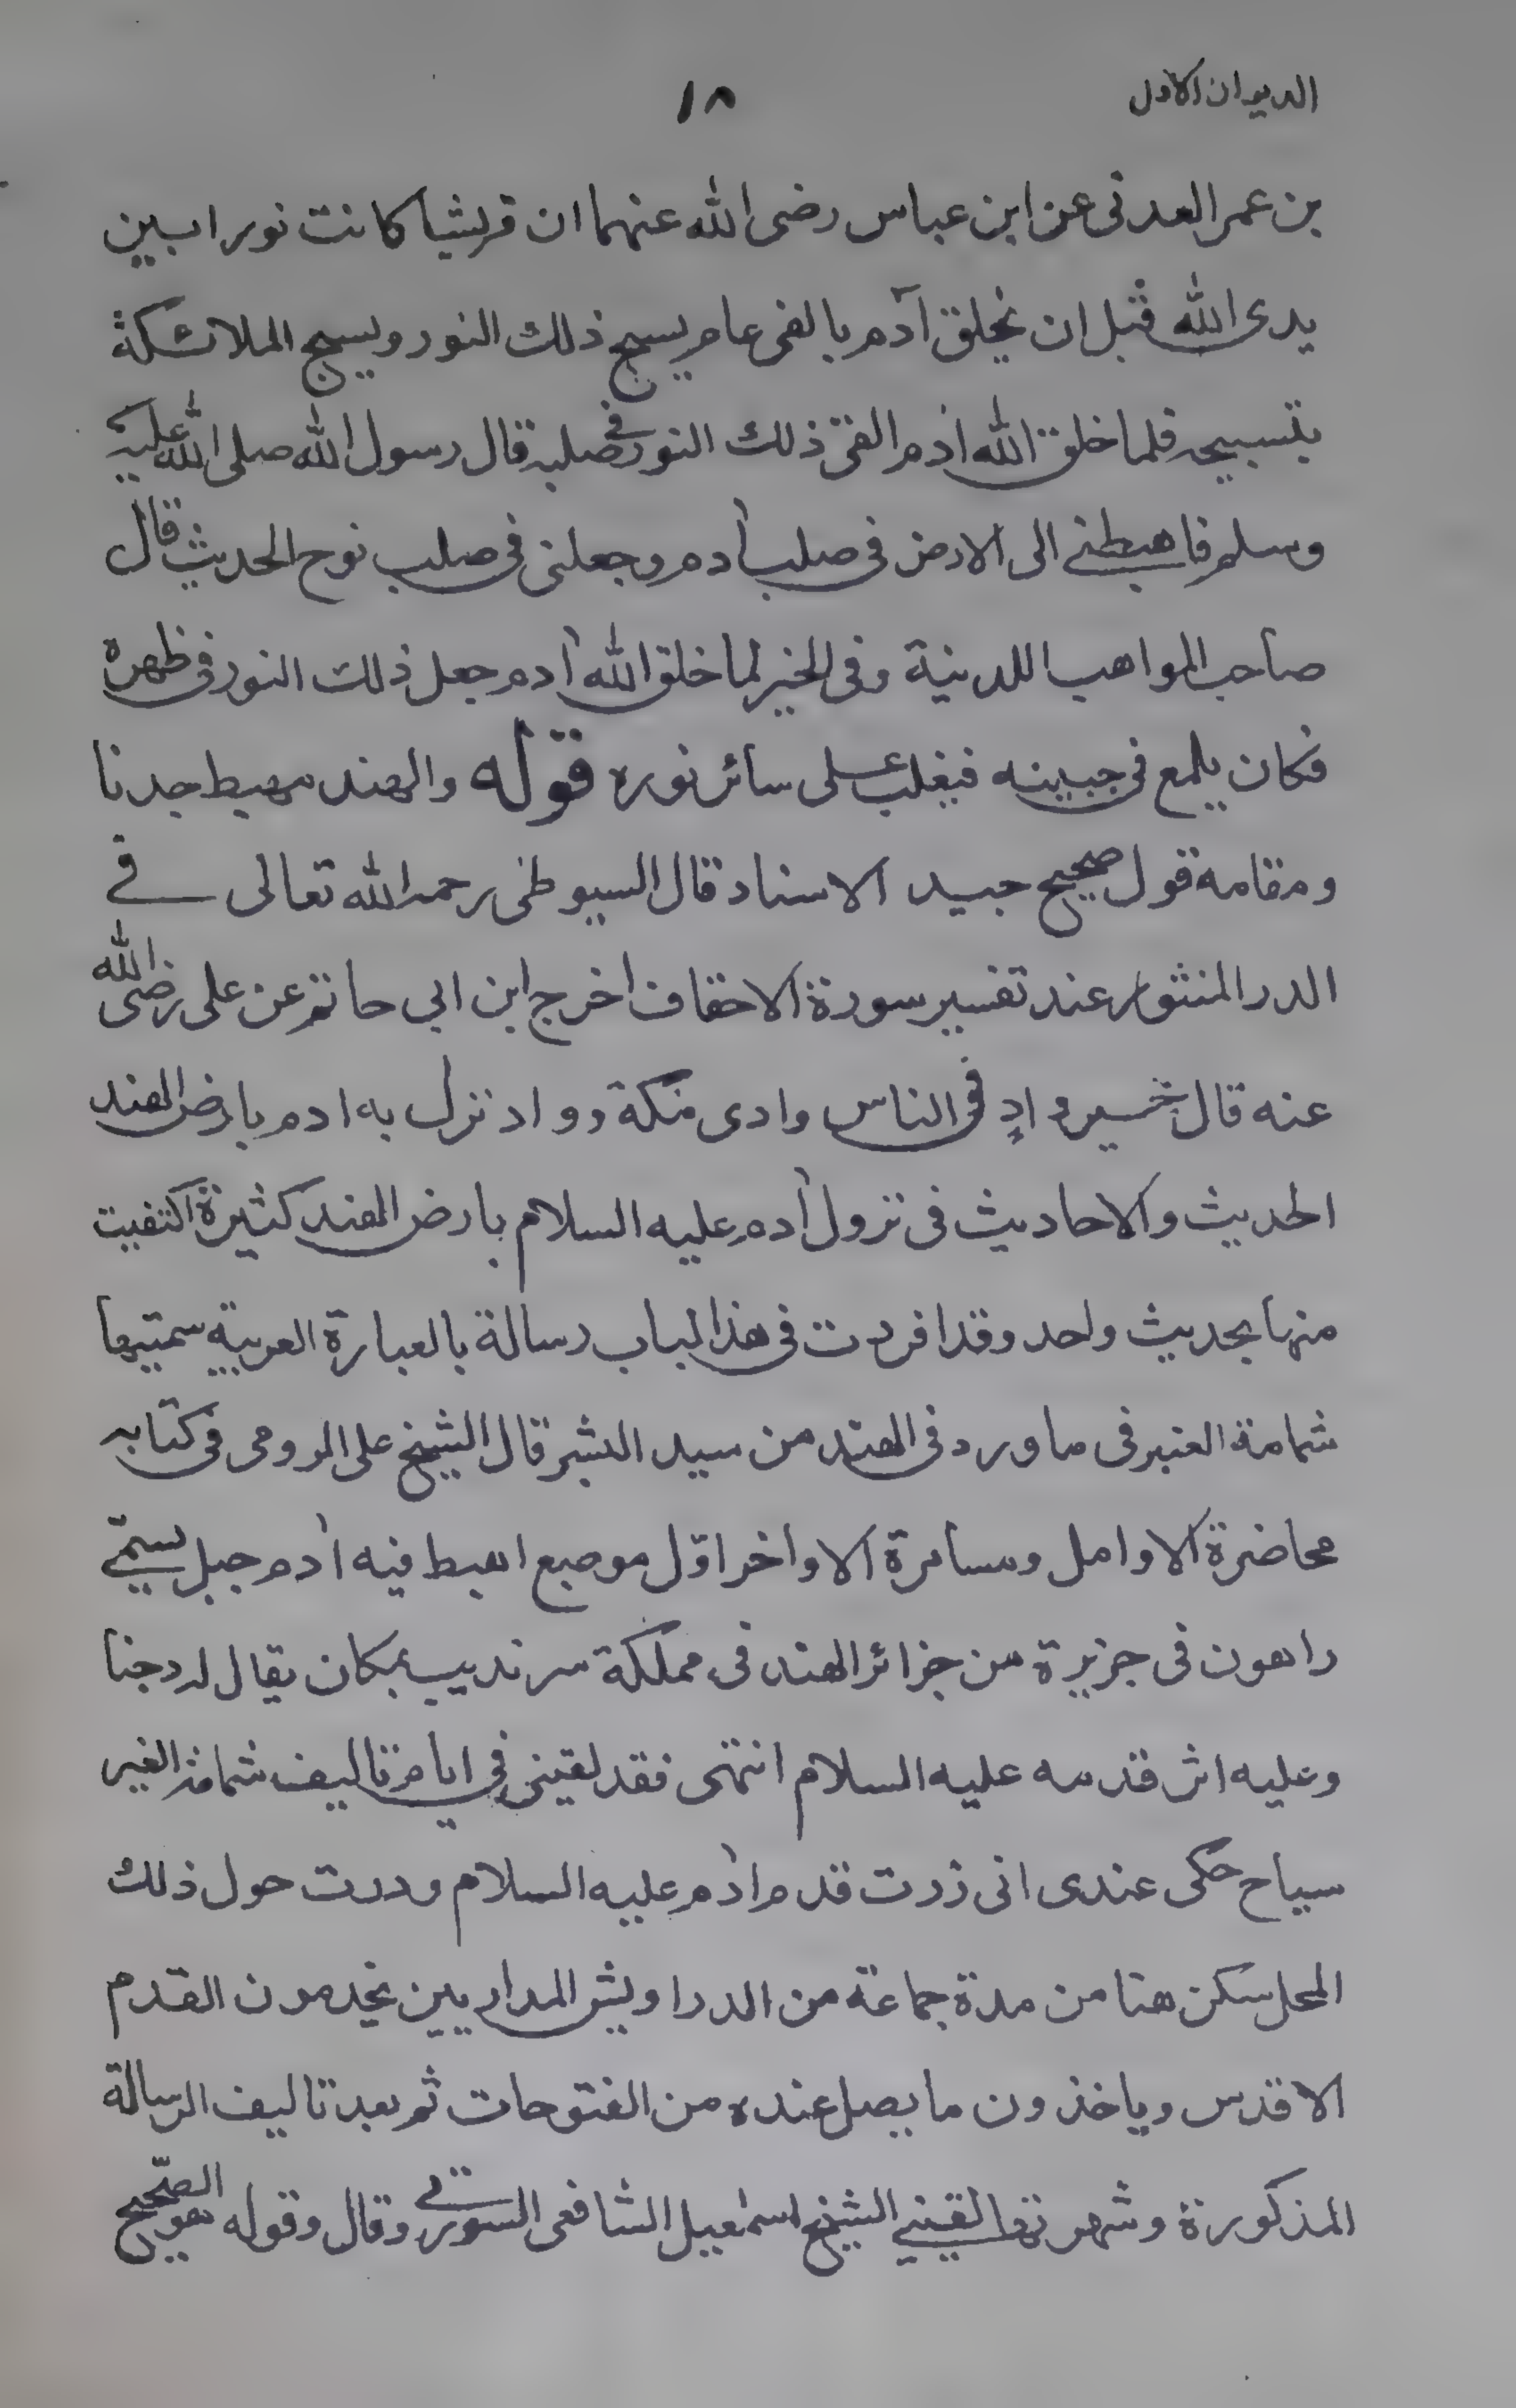 الديوان الاول
١٨
بن عمر العدنى عن ابن عباس رضى الله عنهما ان قريشا كانت نورا بين
يدى الله قبل ان يخلق آدم بالفى عام يسبح ذلك النور ويسبح الملائكة
بتسبيحه فلما خلق الله اٰدم القى ذلك النور فى صلبه قال رسول الله صلى الله عليه
وسلم فاهبطنى الى الارض فى صلب اٰدم وجعلنى فى صلب نوح الحديث قال
صاحب المواهب اللدنية وفى الخبر لما خلق الله اٰدم جعل ذلك النور فى ظهره
فكان يلمع فى جبينه فيغلب على سائر نوره قوله والهند مهبط جدنا
ومقامه قول صحيح جيد الاسناد قال السيوطى رحمه الله تعالى فى
الدر المنثور عند تفسير سورة الاحقاف اخرج ابن ابى حاتم عن على رضى الله
عنه قال خير واد فى الناس وادى مكة وواد نزل به ادم بارض الهند
الحديث والاحاديث فى نزول اٰدم عليه السلام بارض الهند كثيرة اكتفيت
منها بحديث واحد وقد افردت فى هذا الباب رسالة بالعبارة العربية سميتها
شمامة العنبر فى ما ورد فى الهند من سيد البشر قال الشيخ على الرومى فى كتابه
محاضرة الاوامل ومسامرة الاواخر اوّل موضع اهبط فيه اٰدم جبل يسمّى
راهون فى جزيرة من جزائر الهند فى مملكة سرنديب بمكان يقال له دجنا
وعليه اثر قدمه عليه السلام انتهى فقد لقينى فى ايام تاليف شمامة العنبر
سياح حكى عندى انى زرت قدم اٰدم عليه السلام ودرت حول ذلك
المحل سكن هنا من مدة جماعة من الدراويش المداريين يخدمون القدم
الاقدس وياخذون ما يصل عنده من الفتوحات ثم بعد تاليف الرسالة
المذكورة وشهرتها لقينى الشيخ اسمٰعيل الشافعى السورتى وقال وقوله هو الصّحيح